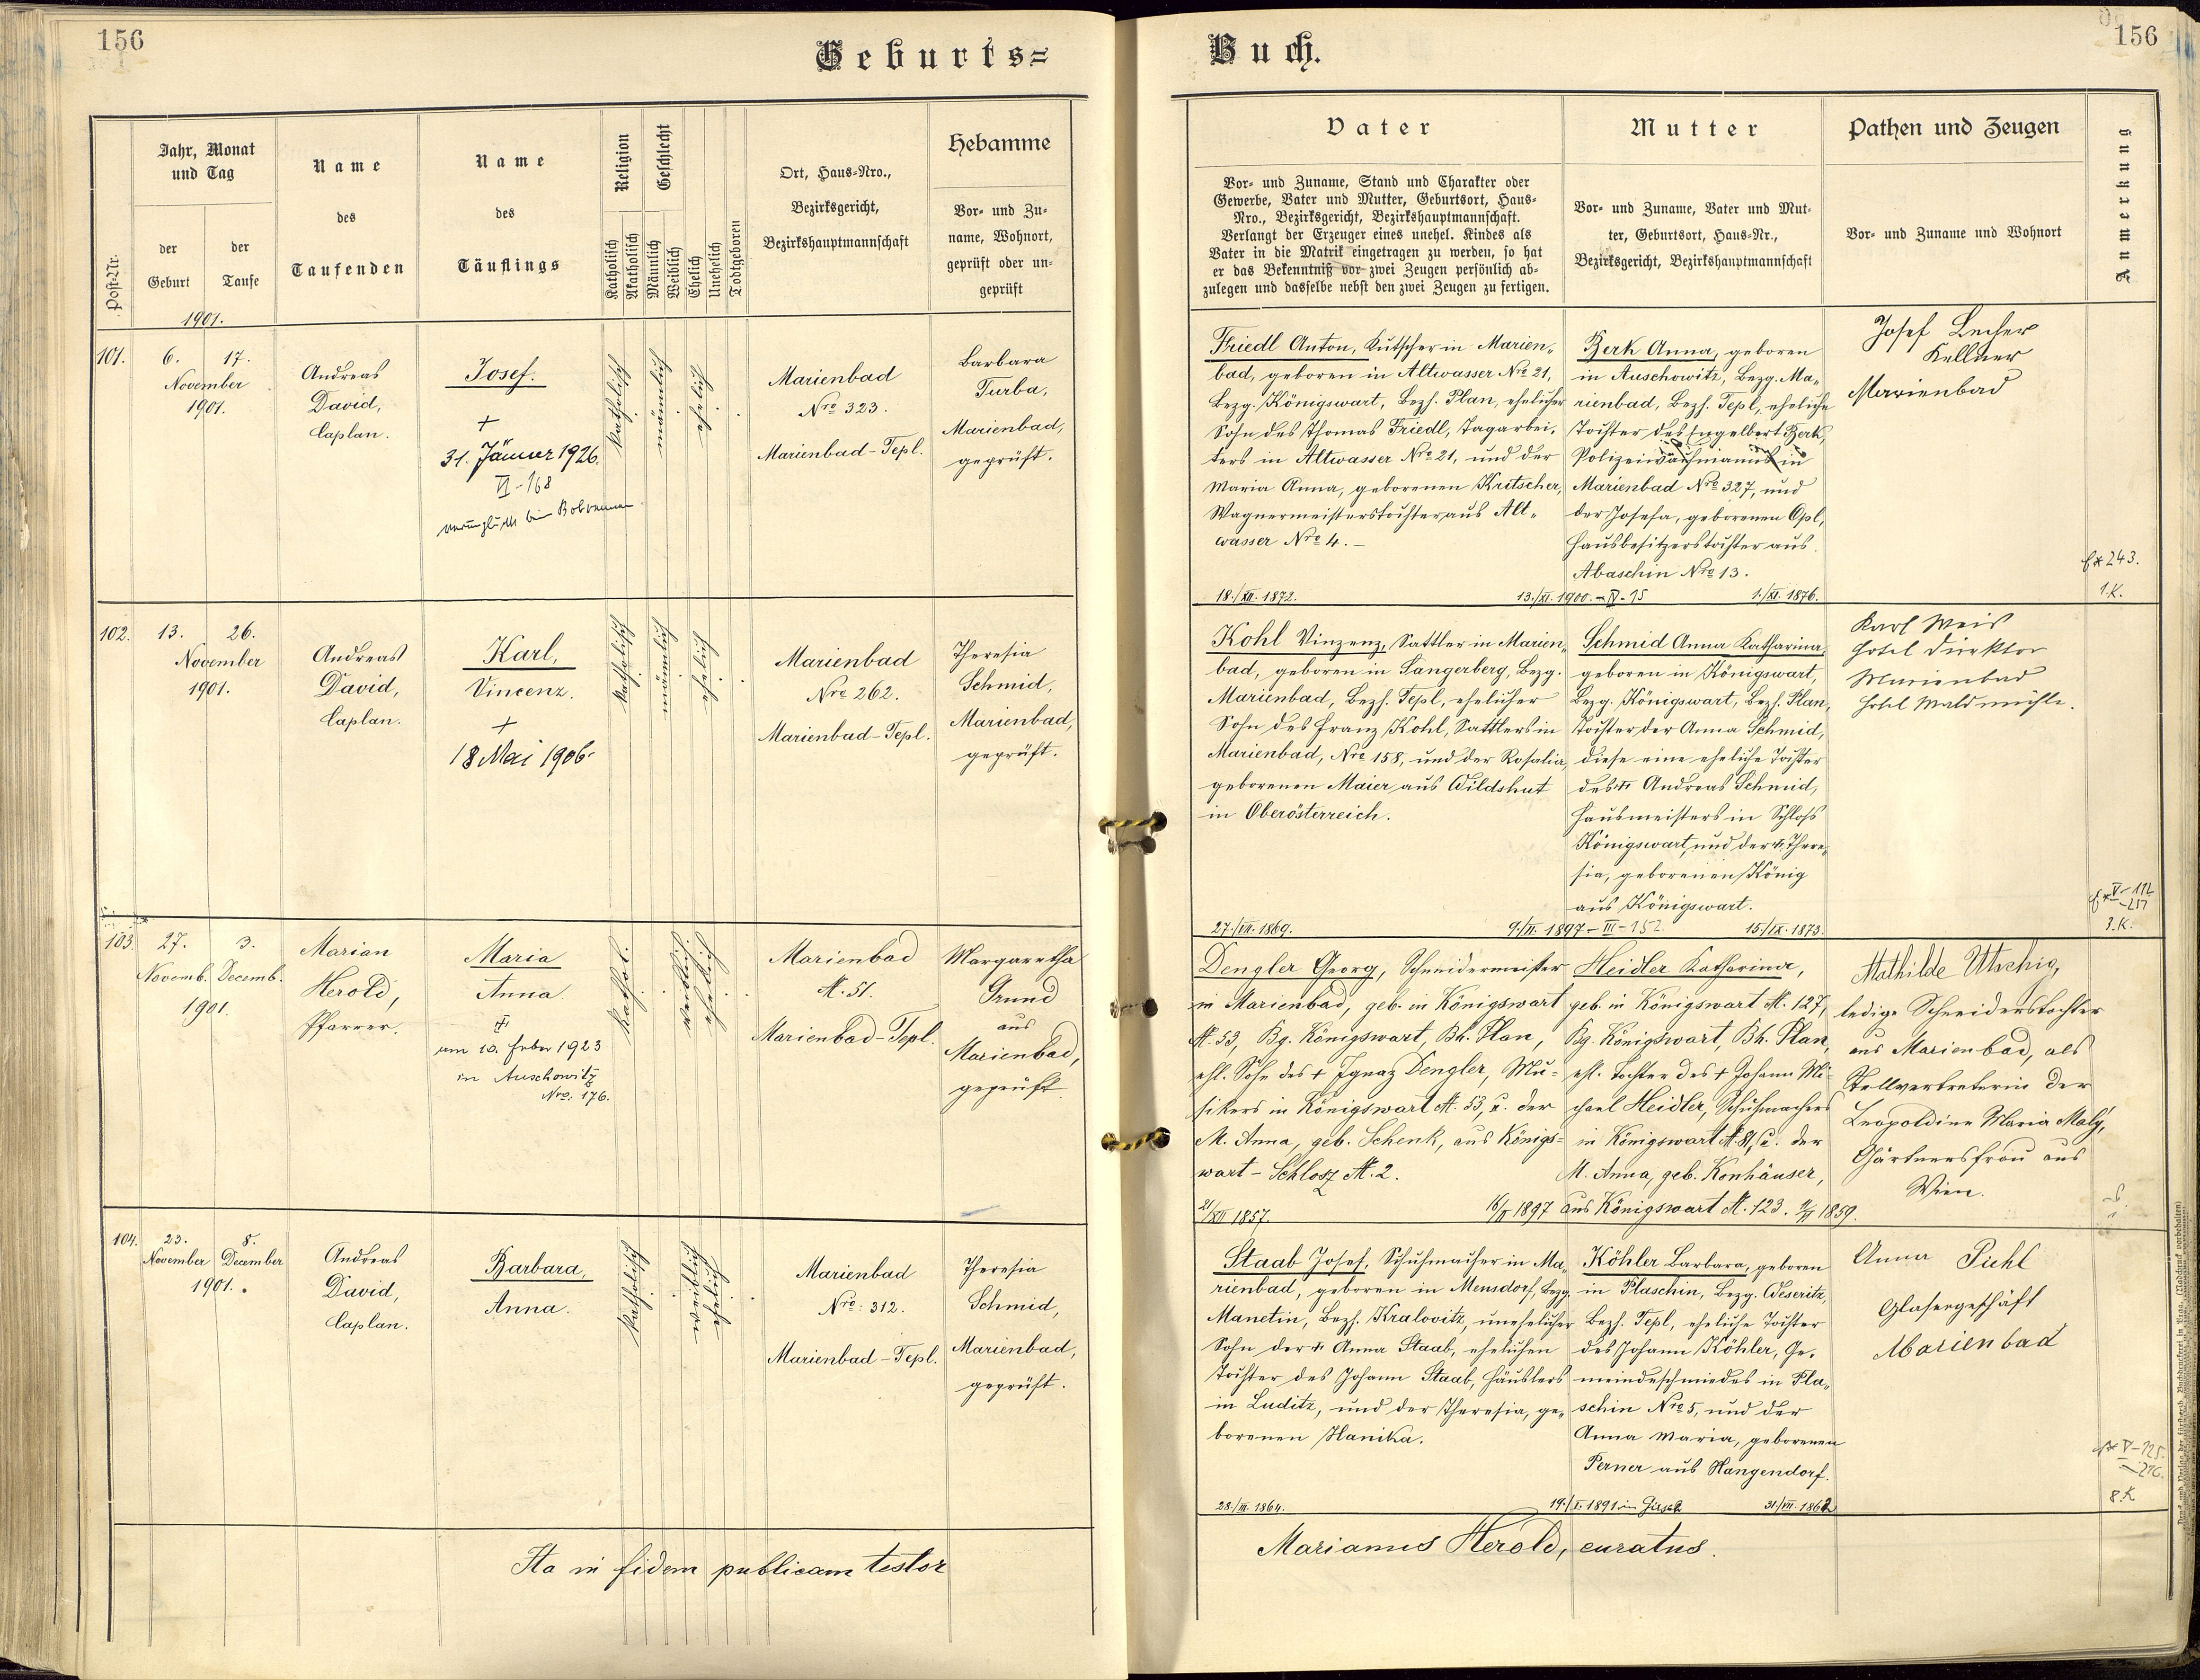 156
Geburts=
Post-Nr.
Jahr, Monat
und Tag
der
Geburt
der
Taufe
Name
des
Taufenden
Name
des
Täuflings
Religion
Katholisch
Akatholisch
Geschlecht
Männlich
Weiblich
Ehelich
Unehelich
Todtgeboren
Ort, Haus-Nro.,
Bezirksgericht,
Bezirkshauptmannschaft
Hebamme
Vor- und Zu-
name, Wohnort,
geprüft oder un-
geprüft
1901.
101.
6. 17.
November
1901.
Andreas
David,
Caplan.
Josef.
+
31. Jänner 1926.
VI-168
verunglückt beim Bobrennen
katholisch
männlich
ehelich
Marienbad
Nro 323.
Marienbad-Tepl.
Barbara
Turba,
Marienbad,
geprüft.
102.
13. 26.
November
1901.
Andreas
David,
Caplan.
Karl,
Vincenz.
+
18 Mai 1906.
katholisch
männlich
ehelich
Marienbad
Nro 262.
Marienbad-Tepl.
Theresia
Schmid,
Marienbad,
geprüft.
103.
27. 3.
Novemb. Decemb.
1901.
Marian
Herold,
Pfarrer.
Maria
Anna
am 10. Feber 1923
in Auschowitz
Nro. 176.
kathol.
weiblich
ehelich
Marienbad
N. 51.
Marienbad-Tepl.
Margaretha
Grund
aus
Marienbad,
geprüft
104.
23. 8.
November December
1901.
Andreas
David,
Caplan.
Barbara,
Anna.
katholisch
weiblich
ehelich
Marienbad
Nro: 312.
Marienbad-Tepl.
Theresia
Schmid,
Marienbad,
geprüft.
Ita in fidem publicam testor
Buch.
156
Vater
Vor- und Zuname, Stand und Charakter oder
Gewerbe, Vater und Mutter, Geburtsort, Haus-
Nro., Bezirksgericht, Bezirkshauptmannschaft.
Verlangt der Erzeuger eines unehel. Kindes als
Vater in die Matrik eingetragen zu werden, so hat
er das Bekenntniß vor zwei Zeugen persönlich ab-
zulegen und dasselbe nebst den zwei Zeugen zu fertigen.
Mutter
Vor- und Zuname, Vater und Mut-
ter, Geburtsort, Haus-Nr.,
Bezirksgericht, Bezirkshauptmannschaft
Pathen und Zeugen
Vor- und Zuname und Wohnort
Anmerkung
Friedl Anton, Kutscher in Marien-
bad, geboren in Altwasser Nro 21,
Bezg. Königswart, Bezh. Plan, ehelicher
Sohn des Thomas Friedl, Tagarbei-
ters in Altwasser Nro 21, und der
Maria Anna, geborenen Kritscher,
Wagnermeisterstochter aus Alt-
wasser Nro 4.
18./XII. 1872.
13./XI. 1900. - IV - 15
Berk Anna, geboren
in Auschowitz, Bezg. Ma-
rienbad, Bezh. Tepl, eheliche
Tochter des Engelbert Berk,
Polizeiwachmanns in
Marienbad Nro 327, und
der Josefa, geborenen Opl,
Hausbesitzerstochter aus
Abaschin Nro 13.
1./XI. 1876.
Josef Lecher
Kellner
Marienbad
243.
1.K.
Kohl Vinzenz, Sattler in Marien-
bad, geboren in Sangerberg, Bezg.
Marienbad, Bezh. Tepl, ehelicher
Sohn des Franz Kohl, Sattlers in
Marienbad, Nro 158, und der Rosalia,
geborenen Maier aus Wildshut
in Oberösterreich.
27./VII. 1869.
9./II. 1897 - III - 152
Schmid Anna Katharina,
geboren in Königswart,
Bezg. Königswart, Bezh. Plan,
Tochter der Anna Schmid,
diese eine eheliche Tochter
des + Andreas Schmid,
Hausmeisters in Schloss
Königswart, und der + There-
sia, geborenen König
aus Königswart.
15./IX. 1873.
Karl Weis
Hotel Direktor
Marienbad
Hotel Waldmühle.
3.K.
Dengler Georg, Schneidermeister
in Marienbad, geb. in Königswart
N. 53, Bg. Königswart, Bh. Plan,
ehl. Sohn des + Ignaz Dengler, Mu-
sikers in Königswart N. 53, u. der
M. Anna, geb. Schenk, aus Königs-
wart - Schlosz N. 2.
21/XII 1857.
Heidler Katharina,
geb. in Königswart N. 127,
Bg. Königswart, Bh. Plan,
ehl. Tochter des + Johann Mi-
chael Heidler, Schuhmachers
in Königswart N. 81, u. der
M. Anna, geb. Konhäuser,
aus Königswart N. 123.
Mathilde Utschig,
ledige Schneiderstochter
aus Marienbad, als
Stellvertreterin der
Leopoldine Maria Maly,
Gärtnersfrau aus
Wien.
Staab Josef, Schuhmacher in Ma-
rienbad, geboren in Mensdorf, Bezg.
Manetin, Bezh. Kralovitz, unehelicher
Sohn der + Anna Staab, ehelichen
Tochter des Johann Staab, Häuslers
in Luditz, und der Theresia, ge-
borenen Hanika.
28./III. 1864.
Köhler Barbara, geboren
in Plaschin, Bezg. Weseritz,
Bezh. Tepl, eheliche Tochter
des Johann Köhler, Ge-
meindeschmiedes in Pla-
schin Nro 5, und der
Anna Maria, geborenen
Perner aus Hangendorf.
31./VII. 1862
Anna Pichl
Glasergeschäft
Marienbad
8.K
Marianus Herold, curatus.